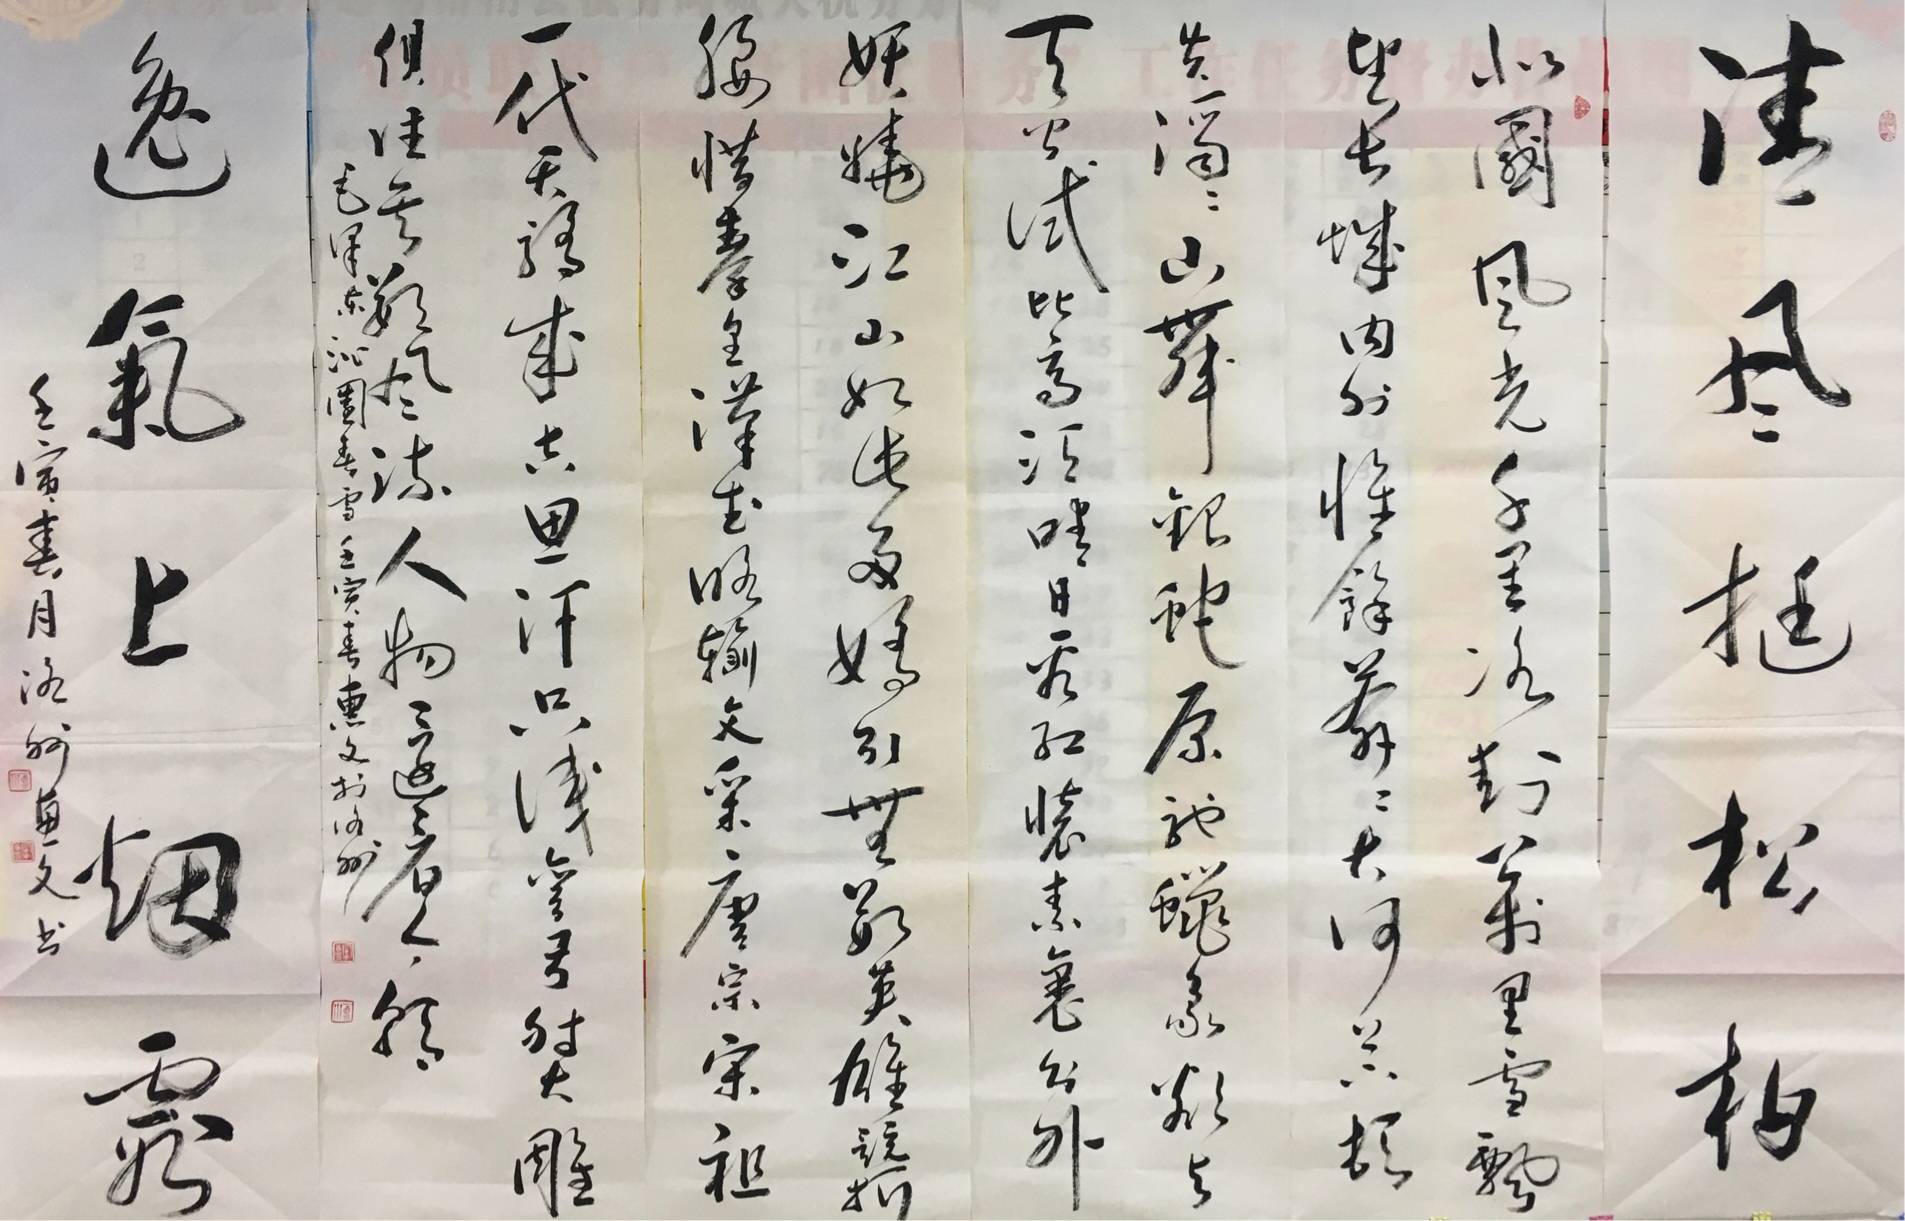 清风挺松柏
北國风光千里冰封万里雪飘
望长城内外惟餘莽〻大河上下顿
失滔〻山舞銀蛇原驰蠟象欲与
天公试比高须晴日看红装素裹分外
妖娆江山如此多娇引無数英雄競折
腰惜秦皇漢武略输文采唐宗宋祖
一代天骄成吉思汗只识弯弓射大雕
俱往矣数风流人物还看今朝
毛泽东沁園春雪壬寅春惠文於洛州
逸氣上烟霞
壬寅春月洺州惠文书